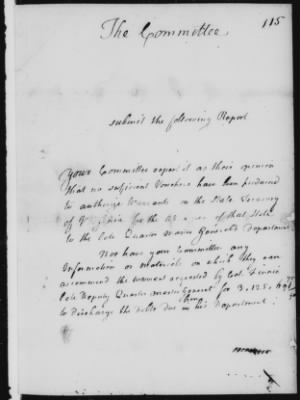 The Committee
115
submit the following Report
Your Committee report it as their opinion
that no sufficient Vouchers have been produced
to authorize Warrants on the State Treasury
of Virginia for the of that State
to the late Quarter Master General's Department
Nor have your Committee any
Information or materials on which they can
recommend the warrant requested by Col.
late Deputy Quarter master General for 3,125,
to discharge the debts due in his Department;